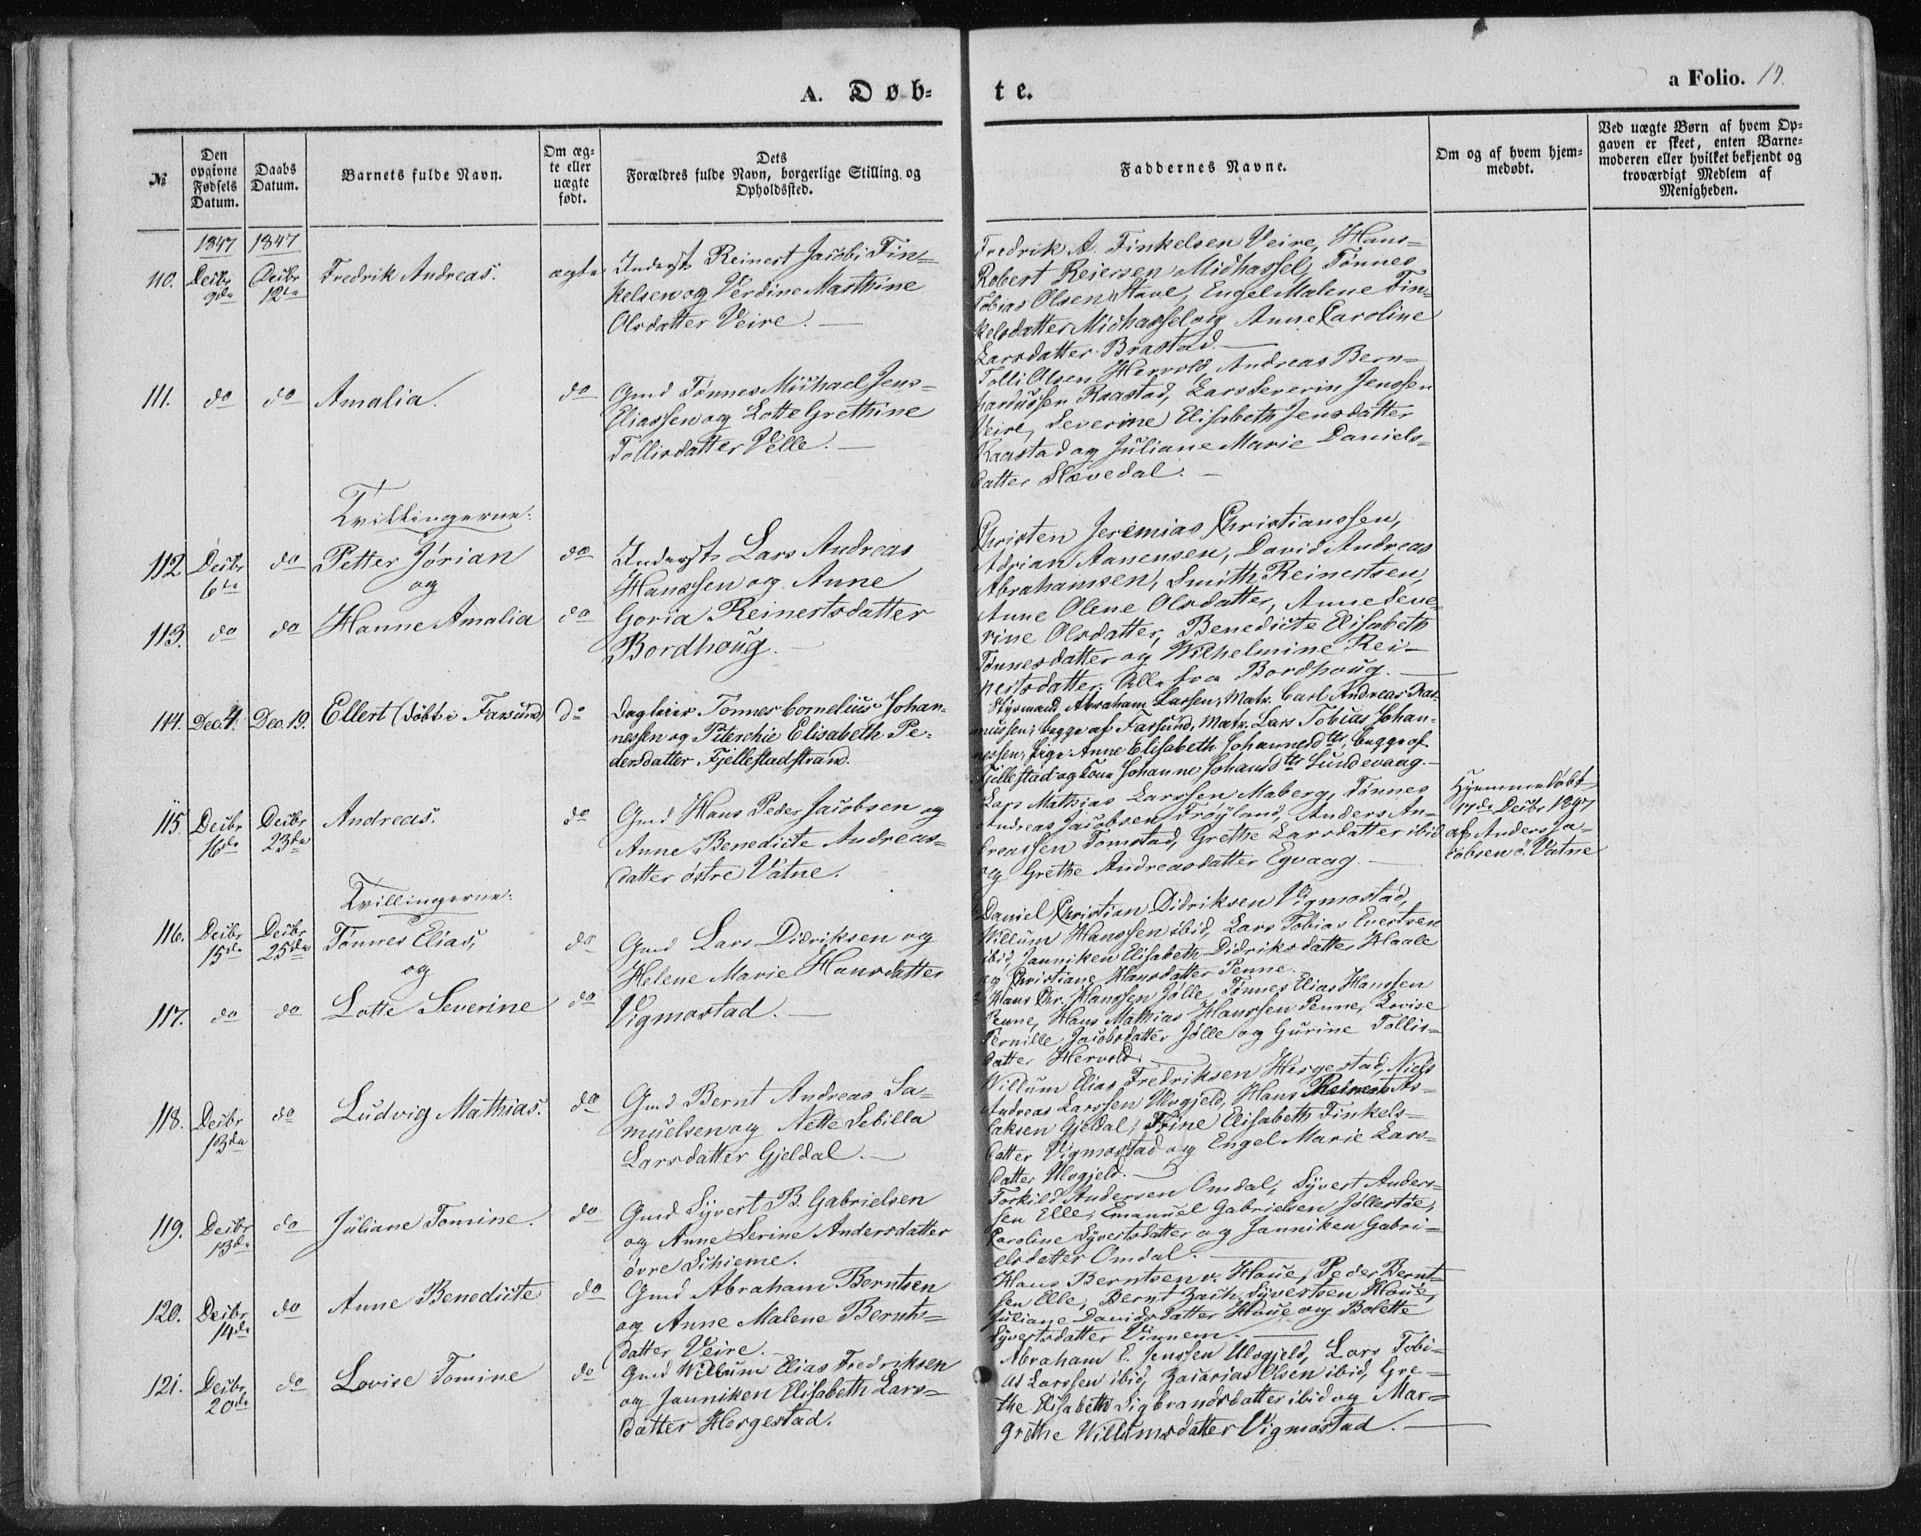 A. Døb-
te.
a Folio. 19.
№
Den opgivne Fødsels Datum.
Daabs Datum.
Barnets fulde Navn.
Om ægte eller uægte født.
Dets Forældres fulde Navn, borgerlige Stilling og Opholdssted.
Faddernes Navne.
Om og af hvem hjemmedøbt.
Ved uægte Børn af hvem Opgaven er skeet, enten Barnemoderen eller hvilket bekjendt og troværdigt Medlem af Menigheden.
1847 1847
110. Decbr 9de Decbr 12te Fredrik Andreas. ægte
Inderst Reinert Jacobi Fin-
kelsen og Verdine Marthine
Olsdatter Veire.
Fredrik A. Finkelsen Veire, Hans
Robert Reiersen Midhassel, Tønnes
Tobias Olsen Stave, Engel Malene Fin-
kelsdatter Midhassel og Anne Caroline
Larsdatter Brastad.
111. do do Amalia. do
Gmd Tønnes Michael Jens-
Eliassen og Lotte Grethine
Tollisdatter Velle.
Tolli Olsen Hervold, Andreas Bern-
hardussen Raastad, Lars Severin Jenssen
Veire, Severine Elisabeth Jensdatter
Raastad og Juliane Marie Daniels-
datter Slevedal.
Tvillingerne:
112 Decbr 6te do Petter Jórian do
og
113. do do Hanne Amalia do
Inderst Lars Andreas
Hanssen og Anne
Goria Reinertsdatter
Bordhoug.
Christen Jeremias Christianssen,
Adrian Aanensen, David Andreas
Abrahamsen, Smith Reinertsen,
Anne Olene Olsdatter, Anne Seve-
rine Olsdatter, Benedicte Elisabeth
Tønnesdatter og Wilhelmine Rei-
nertsdatter. Alle fra Bordhoug.
114. Dec. 4. Dec. 19. Ellert (døbt i Farsund) do
Dagleier Tønnes Cornelius Johan-
nessen og Peterchie Elisabeth Pe-
dersdatter Fjellestadstrand.
Styrmand Abraham Larsen, Matr. Carl Andreas Ras-
mussen, begge af Farsund, Matr. Lars Tobias Johan-
nessen, Pige Anne Elisabeth Johannesdtr, begge af
Fjellestad og Kone Johanne Johansdtr Lundevaag.
115. Decbr 16de Decbr 23de Andreas. do
Gmd Hans Peder Jacobsen og
Anne Benedicte Andreas-
datter østre Vatne.
Lars Mathias Larssen Maberg, Tønnes
Andreas Jacobsen Frøyland, Anders An-
dreassen Tomstad, Grethe Larsdatter ibid
og Grethe Andreasdatter Egvaag.
Hjemmedøbt
17de Decbr 1847
af Anders Ja-
cobsen ø. Vatne
Tvillingerne:
116. Decbr 15de Decbr 25de Tønnes Elias, do
og
117. do do Lotte Severine do
Gmd Lars Didriksen og
Helene Marie Hansdatter
Vigmostad.
Daniel Christian Didriksen Vigmostad,
Willum Hanssen ibid, Lars Tobias Evertsen
ibid, Janniken Elisabeth Didriksdatter Haale
og Christiane Hansdatter Penne.
Hans Chr. Hanssen Jølle, Tønnes Elias Hanssen
Penne, Hans Mathias Hanssen Penne, Lovise
Pernille Jacobsdatter Jølle og Gurine Tollis-
datter Hervold.
118. Decbr 13de do Ludvig Mathias. do
Gmd Bernt Andreas Sa-
muelsen og Nette Sebilla
Larsdatter Gjeldal.
Willum Elias Fredriksen Hergestad, Niels
Andreas Larssen Ulvgjeld, Hans Reinert As-
laksen Gjeldal, Trine Elisabeth Finkels-
datter Vigmostad og Engel Marie Lars-
datter Ulvgjeld.
119. Decbr 13de do Juliane Tomine. do
Gmd Syvert B. Gabrielsen
og Anne Serine Andersdatter
øvre Skieme.
Torkild Andersen Omdal, Syvert Anders-
sen Elle, Emanuel Gabrielsen Jøllestøe,
Karoline Syvertsdatter og Janniken Gabri-
elsdatter Omdal.
120. Decbr 14de do Anne Benedicte do
Gmd Abraham Berntsen
og Anne Malene Bernts-
datter Veire.
Hans Berntsen v. Haue, Peder Bernt-
sen Elle, Bernt Zach. Syvertsen Haue,
Juliane Davidsdatter Haue og Bolette
Syvertsdatter Vinnem.
121. Decbr 20de do Lovise Tomine do
Gmd Willum Elias Fredriksen
og Janniken Elisabeth Lars-
datter Hergestad.
Abraham E. Jenssen Ulvgjeld, Lars Tobi-
as Larssen ibid, Zacarias Olsen ibid, Gre-
the Elisabeth Sigbrandsdatter ibid og Mar-
grethe Willumsdatter Vigmostad.